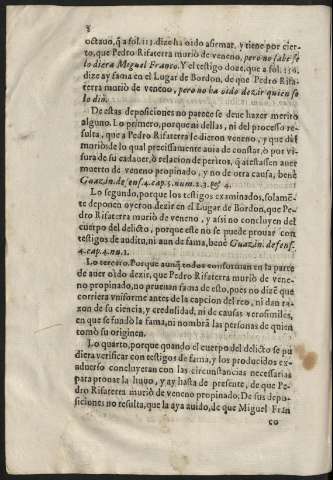 8
octauo, q̃ a fol. 113. dize ha oido afirmar, y tiene por cier-
to, que Pedro Rifaterra murio de veneno, pero no sabe se
lo diera Miguel Franco. Y el testigo doze, que a fol. 154.
dize ay fama en el Lugar de Bordon, de que Pedro Rifa-
terra murió de veneno, pero no ha oido dezir quien se
lo diò.
De estas deposiciones no parece se deue hazer merito
alguno. Lo primero, porque ni dellas, ni del processo re-
sulta, que a Pedro Rifaterra le dieron veneno, y que dèl
muriò de lo qual precissamente auia de constar, ò por vi-
sura de su cadauer, ò relacion de peritos, q̃ atestassen auer
muerto de veneno propinado, y no de otra causa, bene
Guaz. in. defens. 4. cap. 5. num. 2. 3. & 4.
Lo segundo, porque los testigos examinados, solamẽ-
te deponen oyeron dezir en el Lugar de Bordon, que Pe-
dro Rifaterra muriò de veneno, y assi no concluyen del
cuerpo del delicto, porque este no se puede prouar con
testigos de audito, ni aun de fama, bene Guaz. in defens.
4. cap. 4. nu. 1.
Lo tercero. Porque aunq̃ todos constituian en la parte
de auer oido dezir, que Pedro Rifaterra muriò de vene-
no propinado, no prueuan fama de esto, pues no dizẽ que
corriera vniforme antes de la capcion del reo, ni dan ra-
zon de su ciencia, y credulidad, ni de causas verosimiles,
en que se fundò la fama, ni nombrã las personas de quien
tomò su origen.
Lo quarto, porque quando el cuerpo del delicto se pu
diera verificar con testigos de fama, y los producidos ex-
aduerso concluyeran con las circunstancias necessarias
para prouar la huuo, y ay hasta de presente, de que Pe-
dro Rifaterra muriò de veneno propinado: De sus depo-
siciones no resulta, que la aya auido, de que Miguel Fran
co